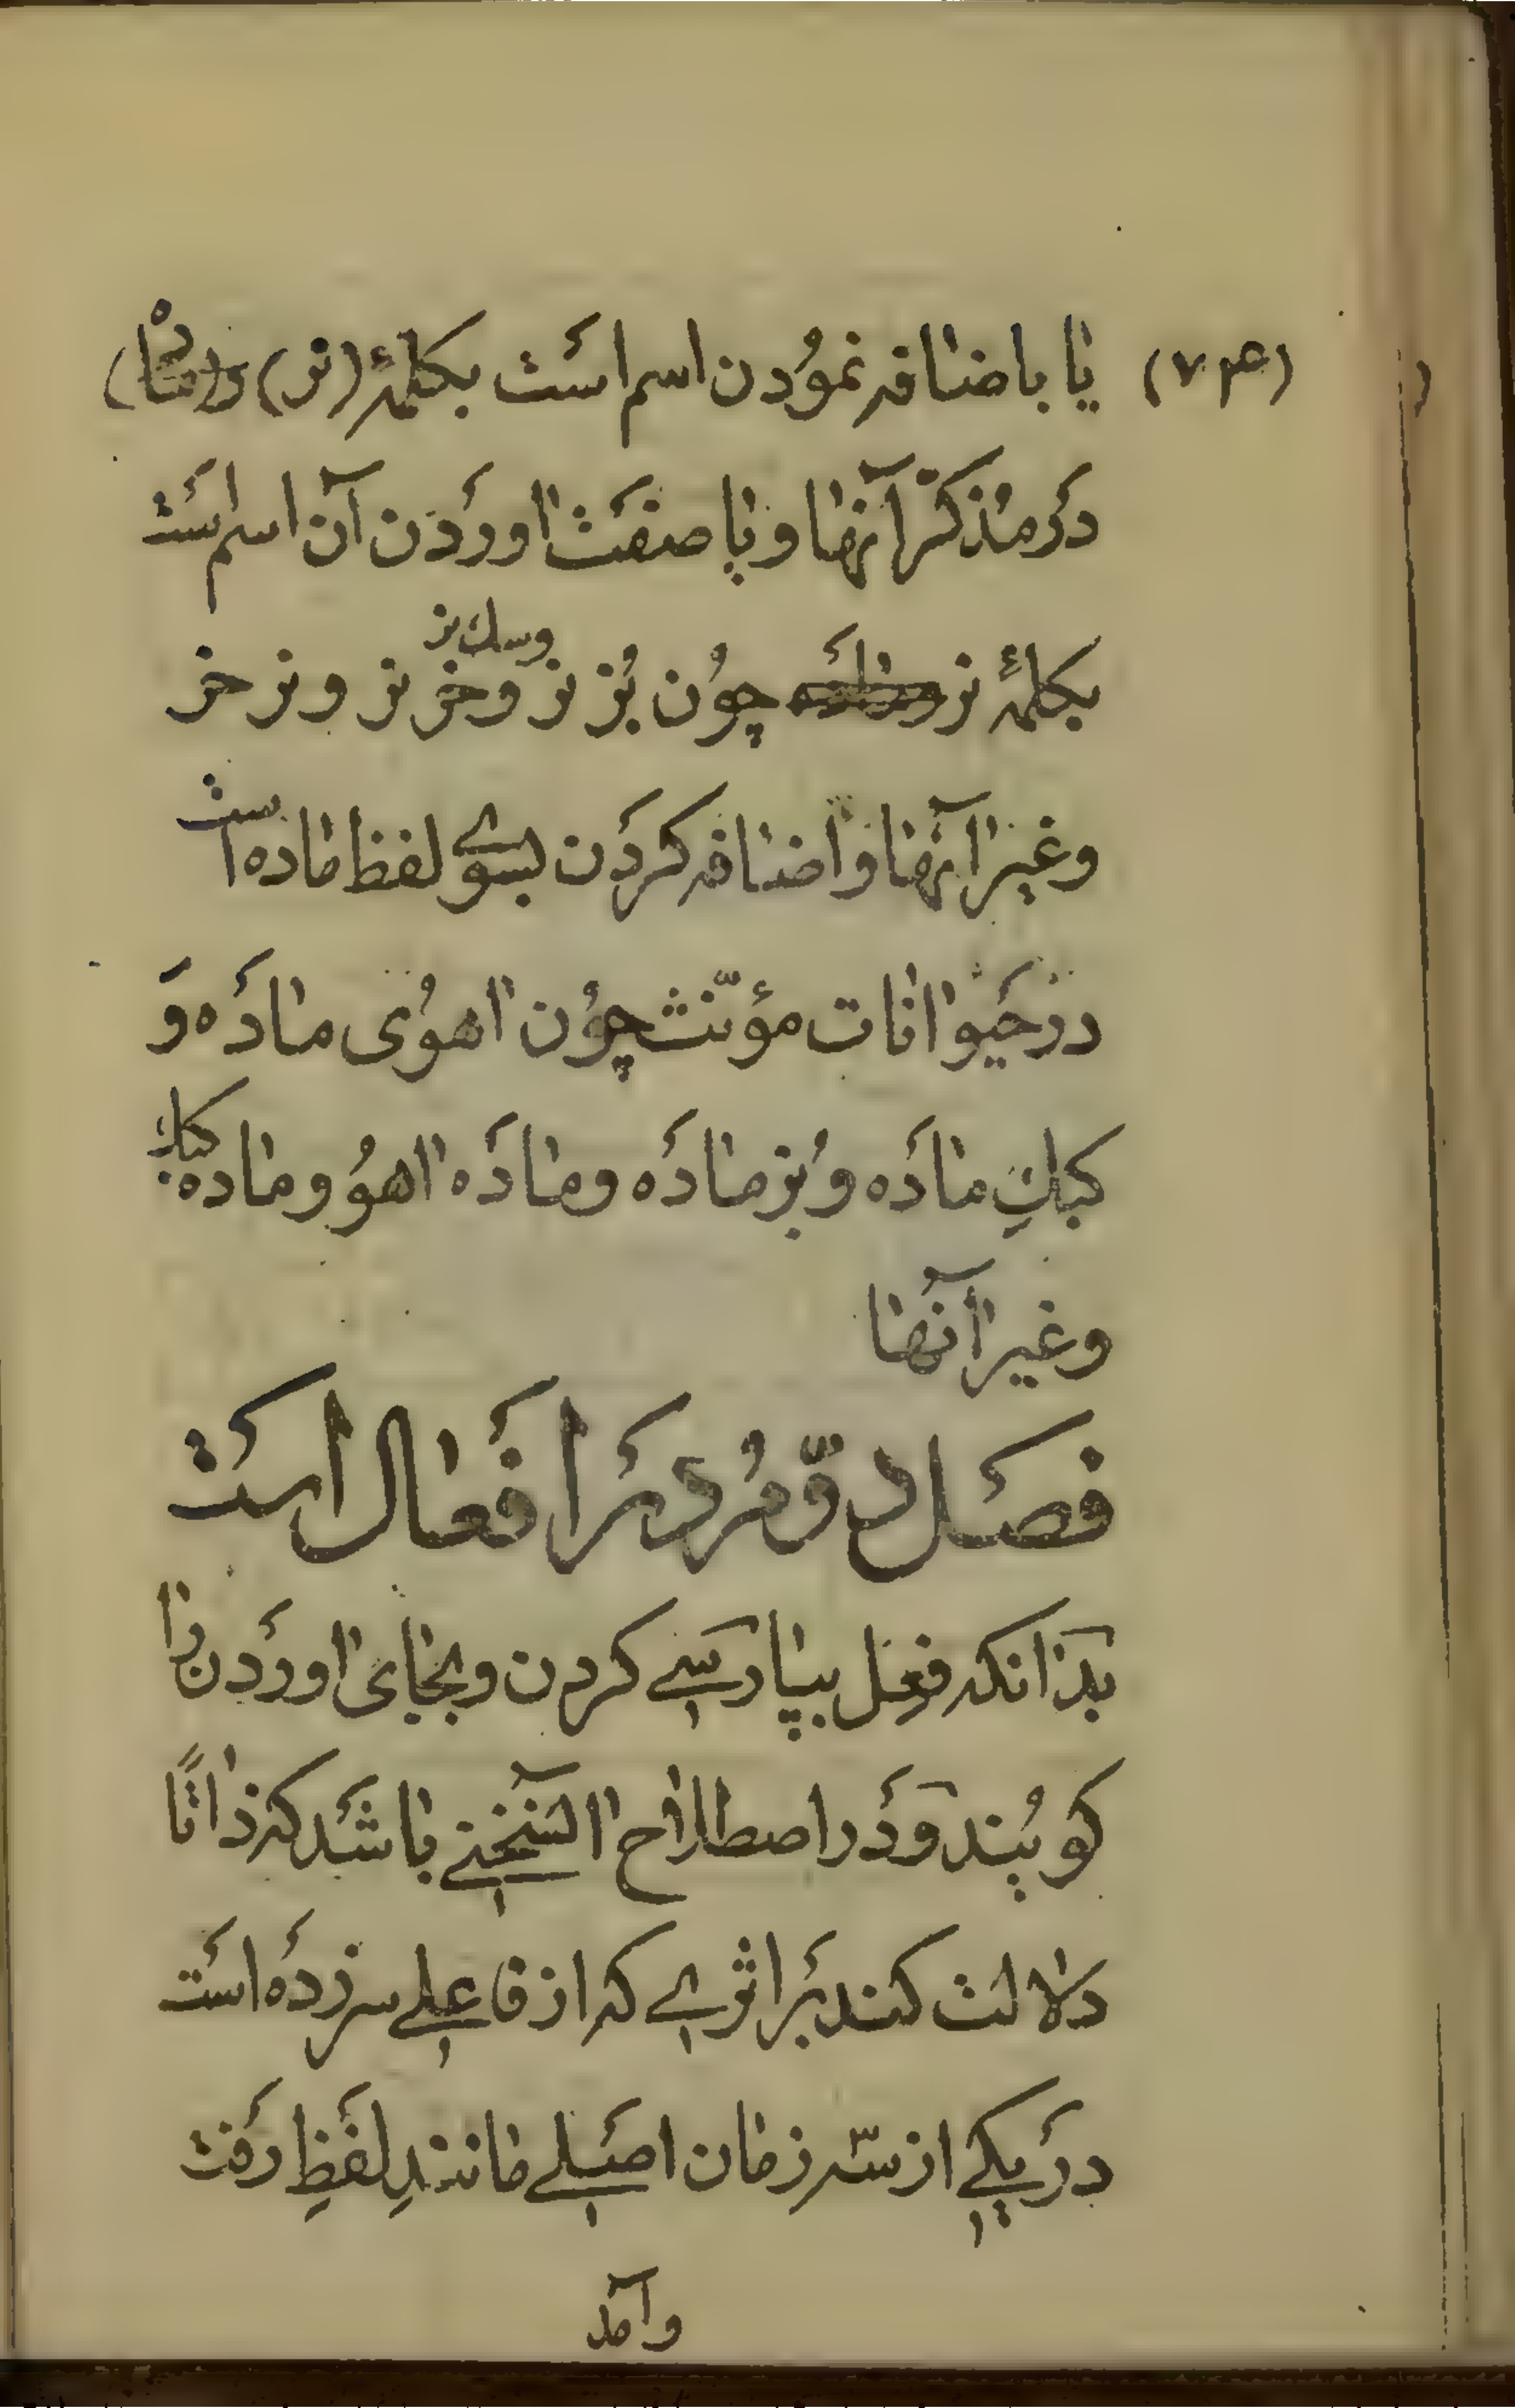 (۷۳۴) یا باضافه نمُودن اسم اسَت بکلمۀ (نر) و (مادْه)
دَر مُذکّر آنها و یا صفَت اورَدن آن اسم اسَت
بکلمۀ نر چوُن بُز نر و سك نر و خر نر و نر خر
و غیر آنها و اضافه کردَن بسوی لفظ ماده است
در حَیوانات مؤنّث چوُن اهوُی مادَه وَ
کبكِ مادَه و بُز مادَه و مادَه اهوُ و ماده کبك
و غیر آنها
فصَل دوّمُ دَر افَعال اسَت
بدَانکه فعِل بپارسَی کردن و بجای اورَدن را
کویُند وَ دَر اصطلاح السَّنخی باشَد که ذاتًا
دلالت کند بَر اثری که از فاعلی سر زدَه اسَت
در یکی از سّه زمان اصَلی مانندِ لفَظِ رَفت
و آمد